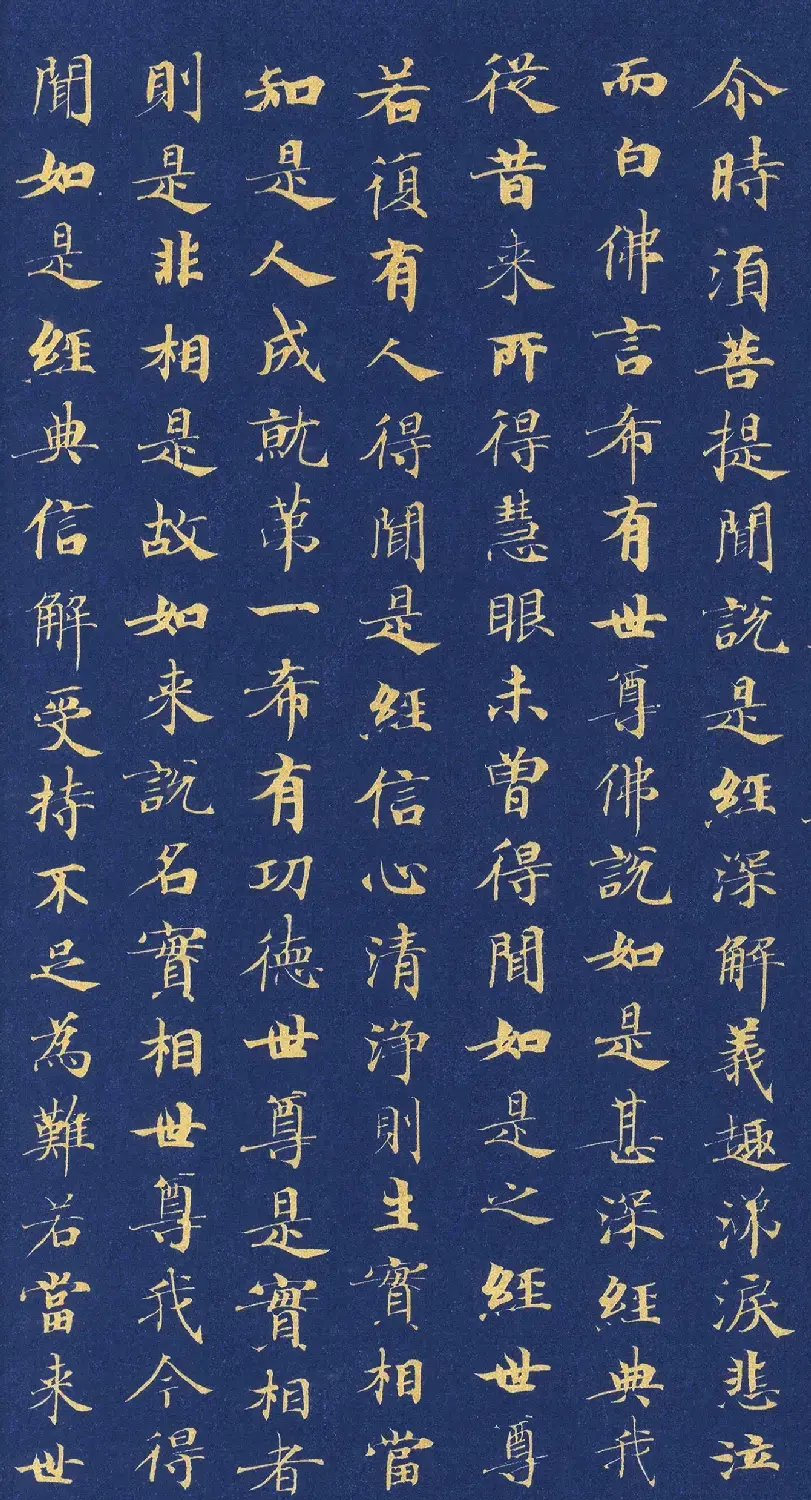 尒時須菩提聞說是經深解義趣涕淚悲泣
而白佛言希有世尊佛說如是甚深經典我
從昔来所得慧眼未曾得聞如是之經世尊
若復有人得聞是經信心清淨則生實相當
知是人成就苐一希有功德世尊是實相者
則是非相是故如来說名實相世尊我今得
聞如是經典信解受持不足為難若當来世